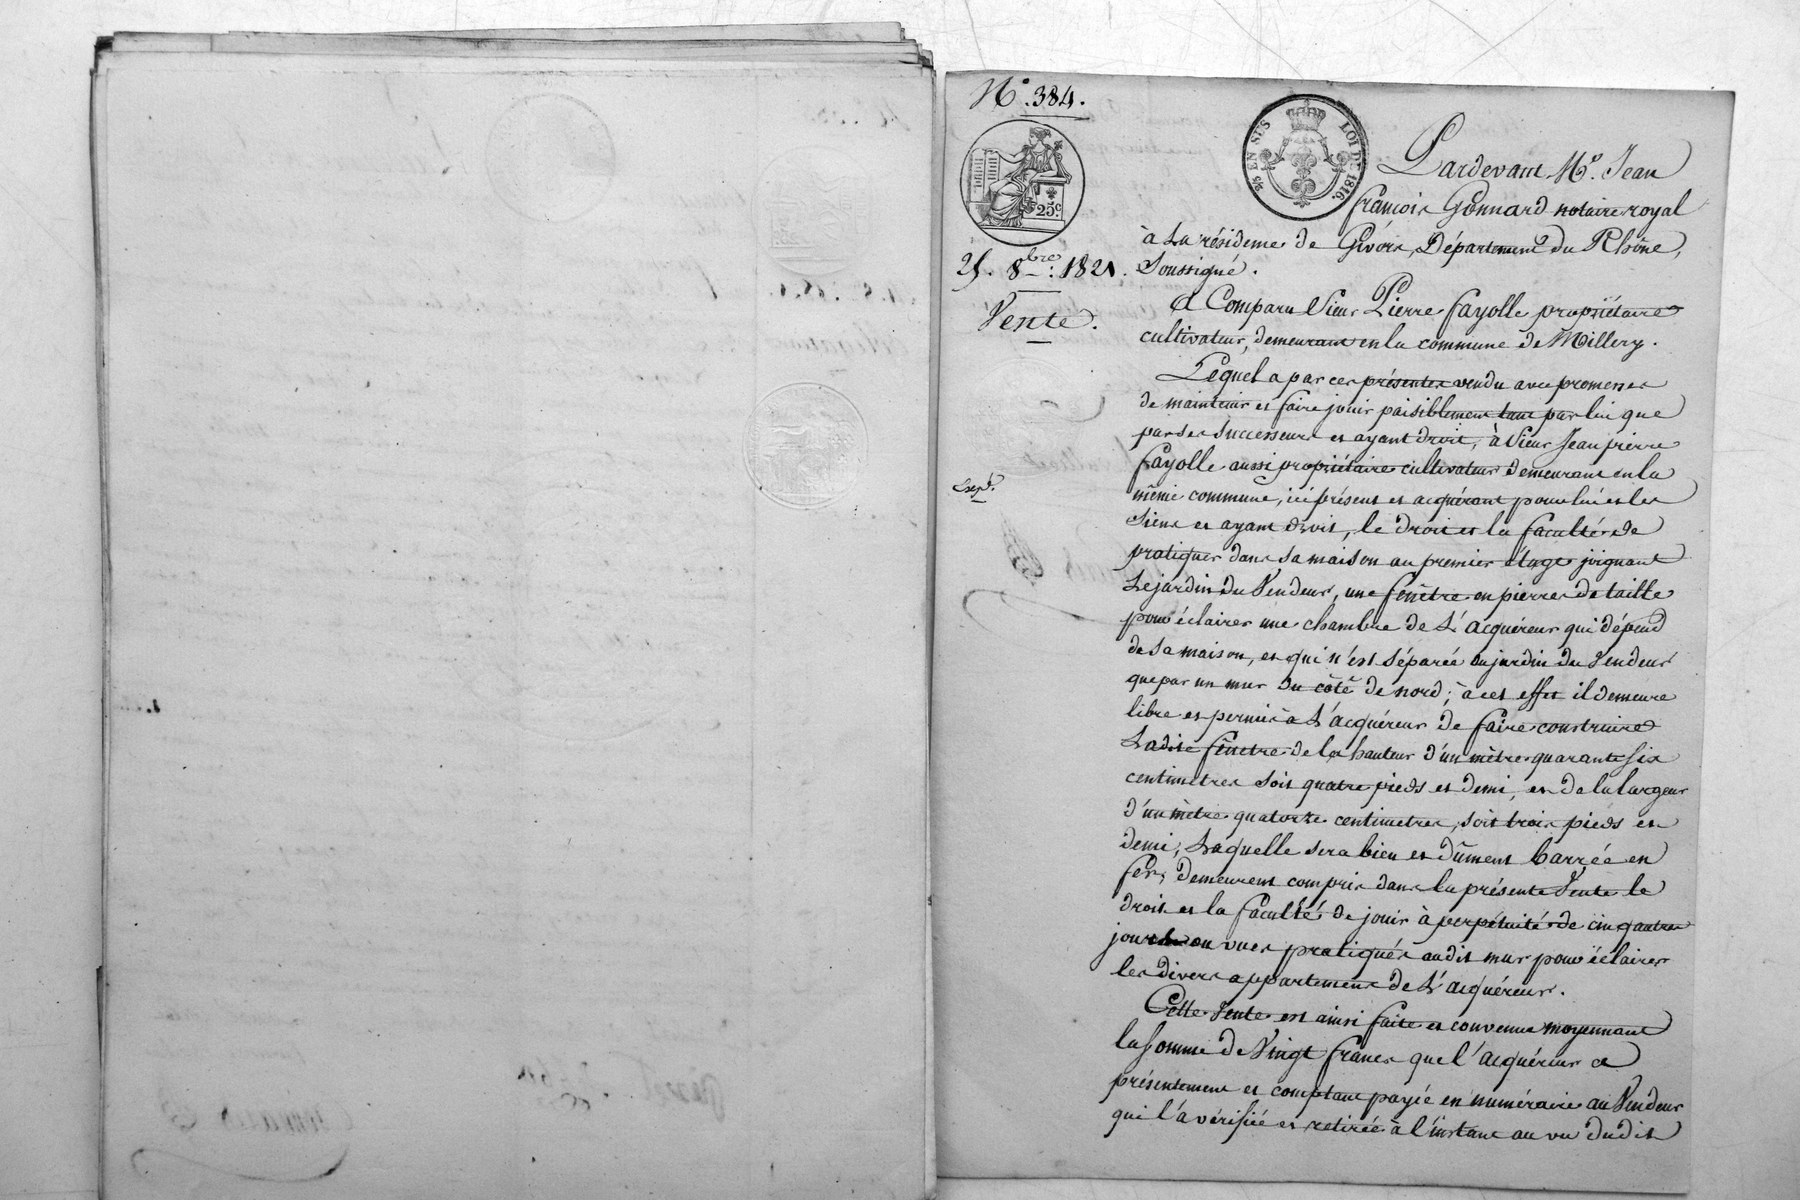 N.° 384.
25.c
25. 8.bre 1821.
Vente.
Exp.é
EN SUS
LOI DE 1816.
Pardevant M.e Jean
françois Gonnard notaire royal
à La résidence de Givors, Département du Rhône,
Soussigné.
a Comparu Sieur Pierre fayolle propriétaire
cultivateur, demeurant en la commune de Millery.
Lequel a par ces présentes vendu avec promesses
de maintenir et faire jouir paisiblement tant par lui que
par ses successeurs et ayant droit, à Sieur Jean pierre
fayolle aussi propriétaire cultivateur demeurant en la
même commune, ici présent et acquérant pour lui et les
Siens et ayant droit, le droit et la faculté de
pratiquer dans sa maison au premier étage joignant
Le jardin du Vendeur, une fenêtre en pierres de taille
pour éclairer une chambre de L'acquéreur qui dépend
de sa maison, et qui n'est séparée au jardin du Vendeur
que par un mur du côté de nord; à cet effet il demeure
libre et permis à L'acquéreur de faire construire
Ladite fenêtre de la hauteur d'un mètre quarante six
centimetres soit quatre pieds et demi, et de la largeur
d'un mètre quatorze centimetres, soit trois pieds et
demi, Laquelle sera bien et dûment barrée en
fer, demeurent compris dans la présente Vente le
droit et la faculté de jouir à perpétuité de cinq autres
jours ou vues pratiqués audit mur pour éclairer
les divers appartements de L'acquéreur.
Cette Vente est ainsi faite et convenue moyennant
la somme de Vingt francs que l'acquéreur a
présentement et comptant payée en numéraire au Vendeur
qui l'a vérifiée et retirée à l'instant au vu dudit